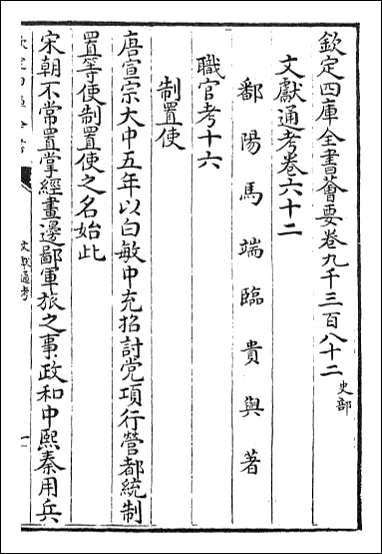 欽定四庫全書薈要卷九千三百八十二
史部
文獻通考卷六十二
鄱陽馬端臨貴與著
職官考十六
制置使
唐宣宗大中五年以白敏中充招討党項行營都統制
置等使制置使之名始此
宋朝不常置掌經畫邊鄙軍旅之事政和中熙秦用兵
文獻通考
一